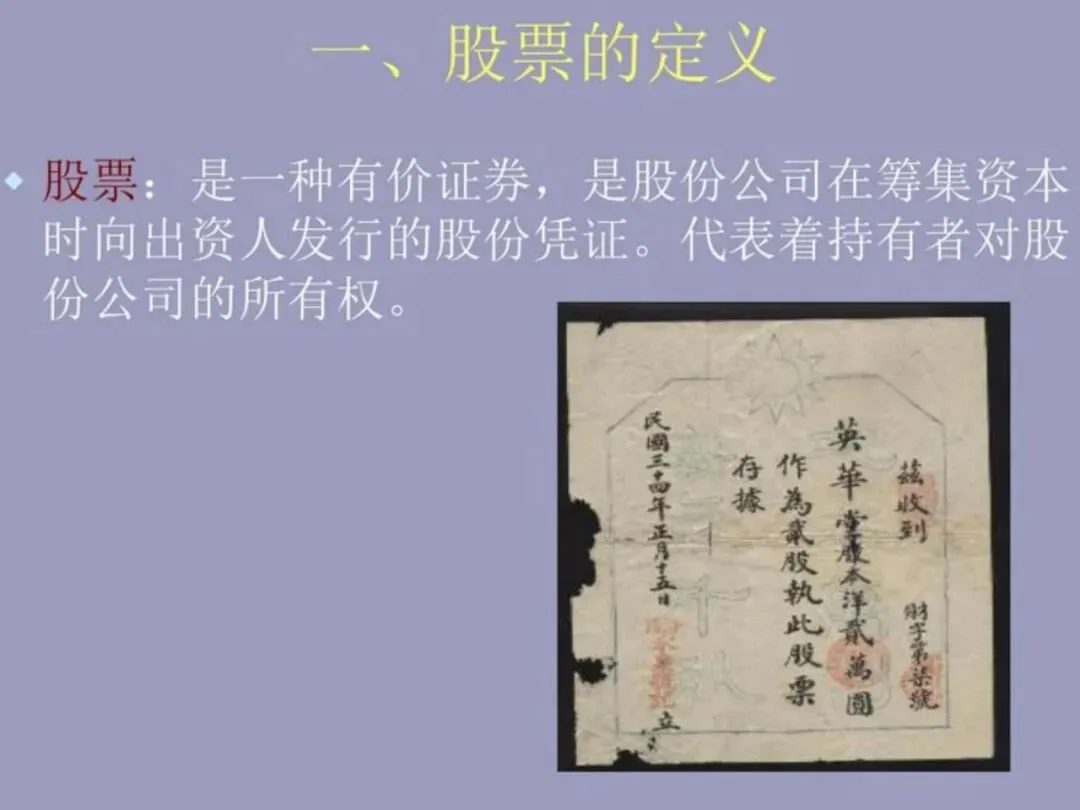 一、股票的定义
股票：是一种有价证券，是股份公司在筹集资本
时向出资人发行的股份凭证。代表着持有者对股
份公司的所有权。
茲收到
財字第柒號
英華堂股本洋貳萬圓
作為貳股執此股票
存據
民國三十四年正月十五日
立